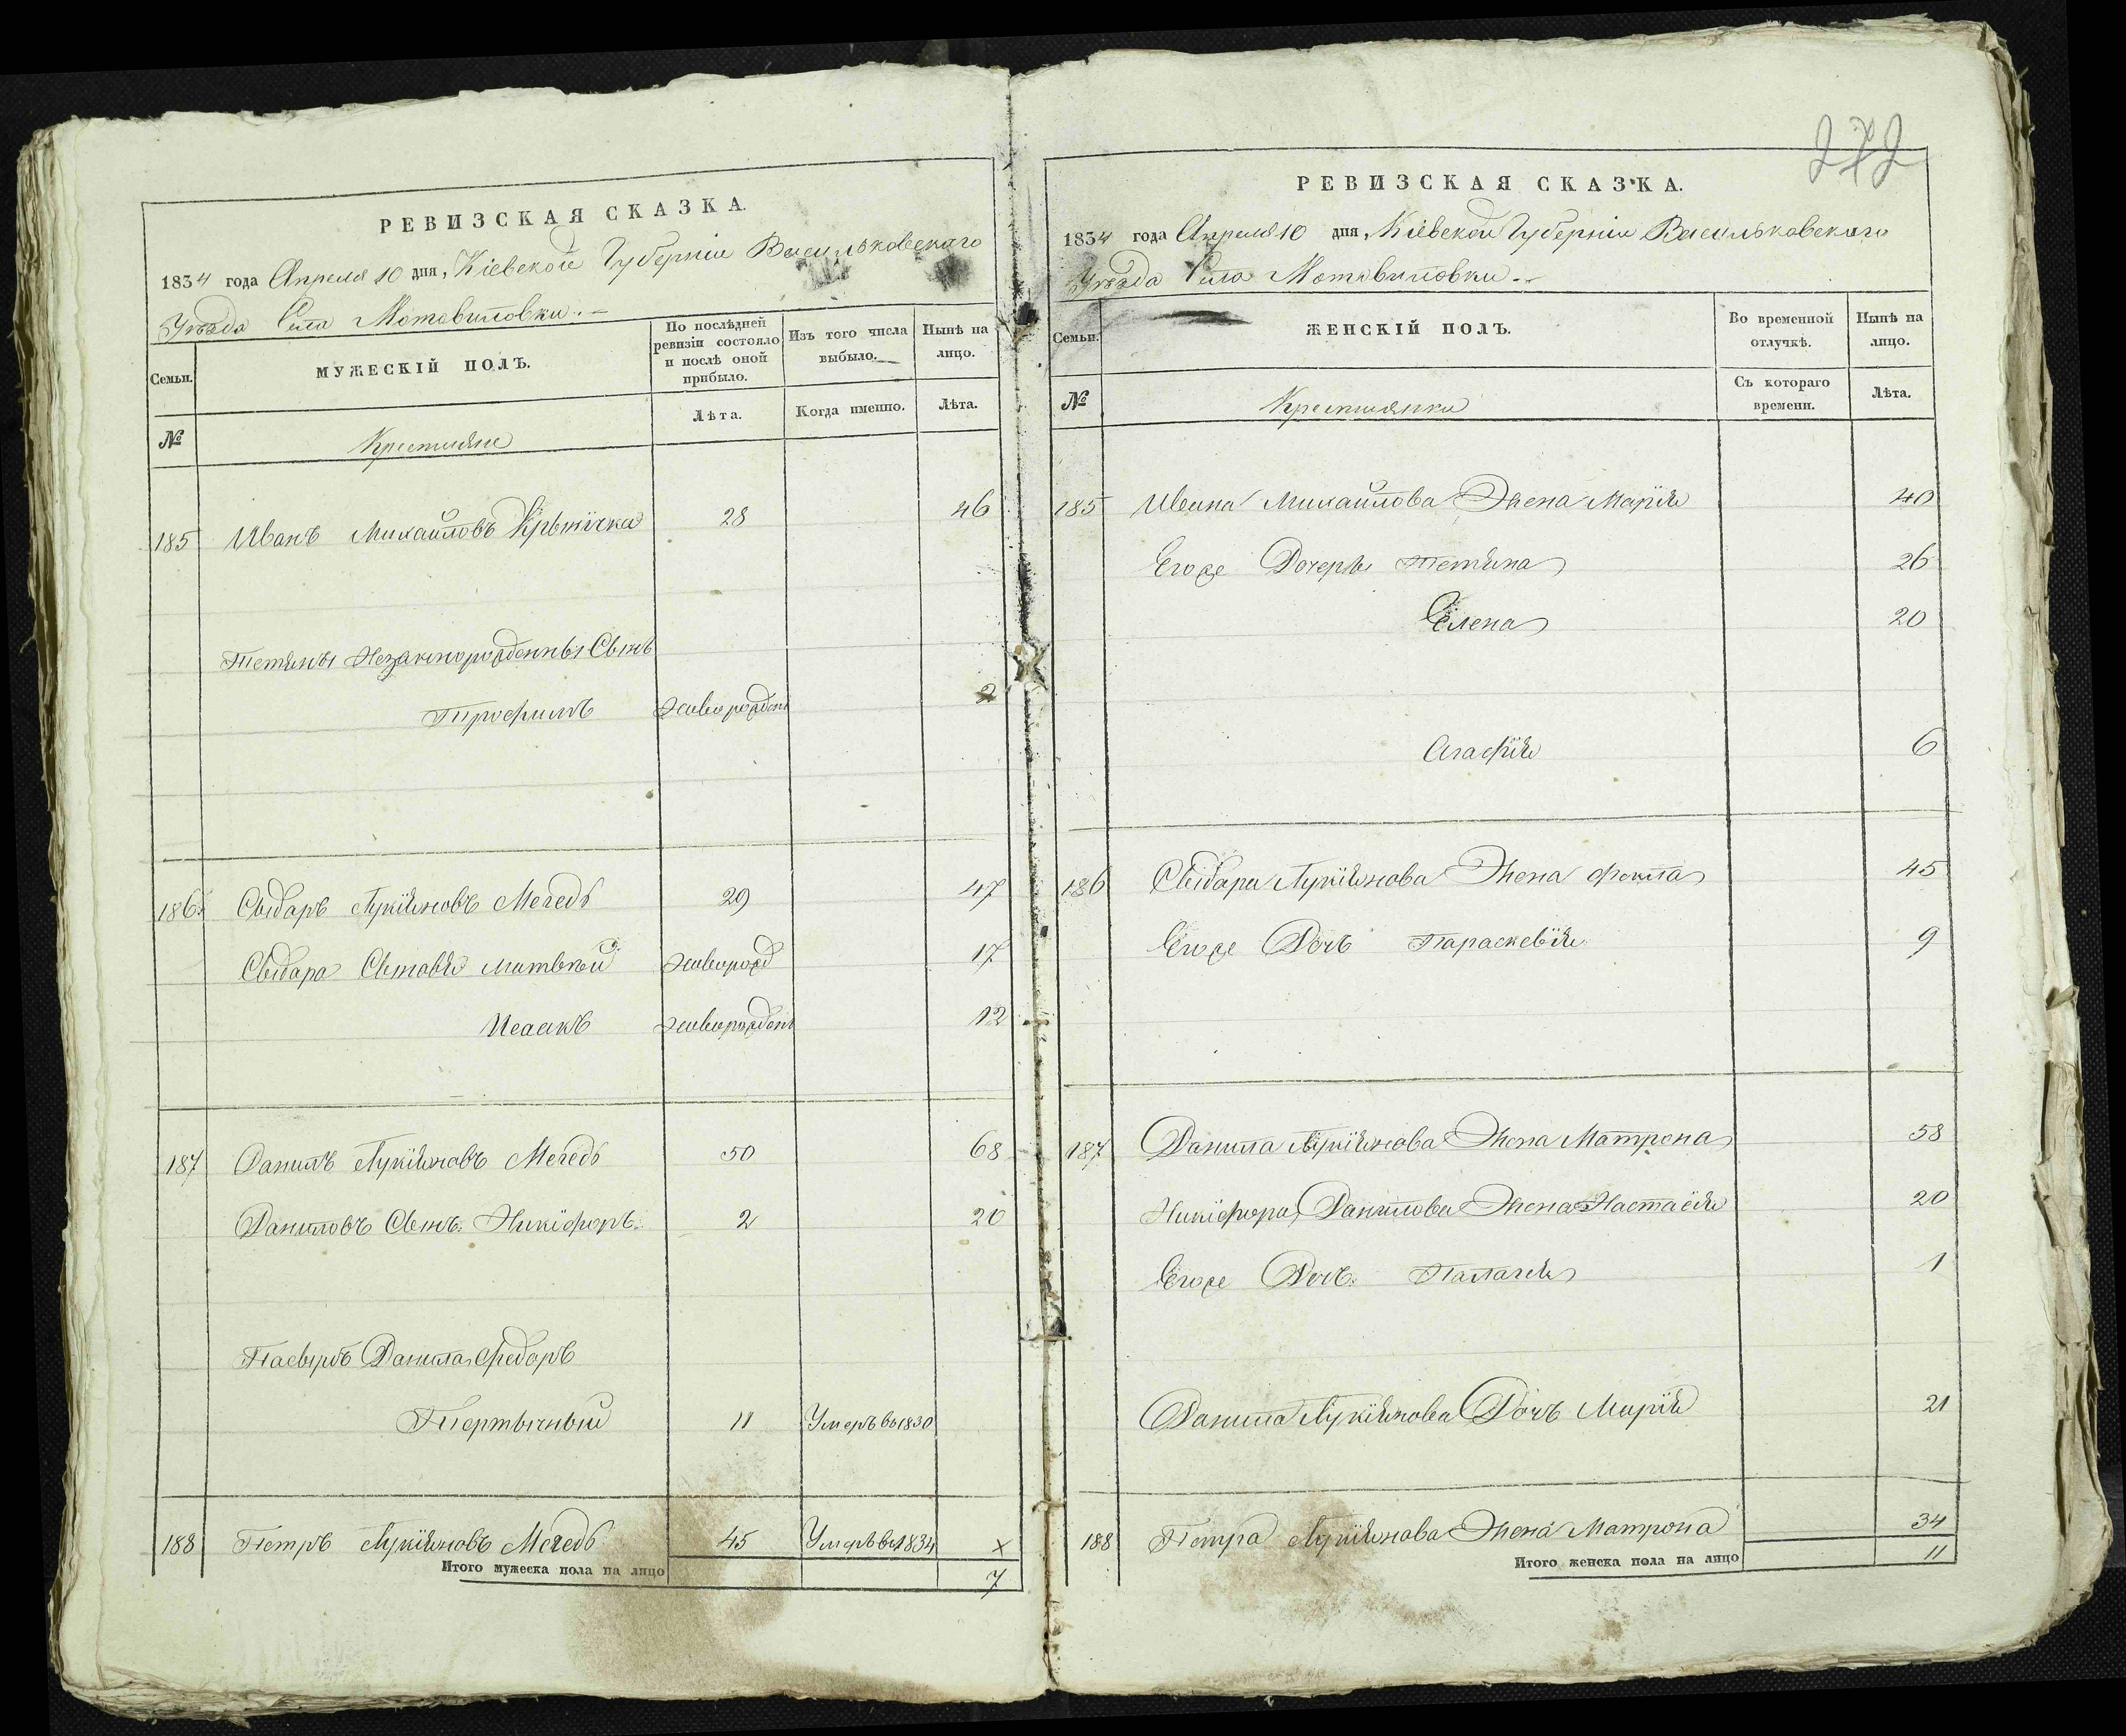 РЕВИЗСКАЯ СКАЗКА.
1834 года Апреля 10 дня, Кіевской Губерніи Васильковского
Уезда Села Мотовиловки.
Семьи.
МУЖЕСКІЙ ПОЛЪ.
По послѣдней ревизіи состояло и послѣ оной прибыло.
Изъ того числа выбыло.
Нынѣ на лицо.
№
Крестьяне
Лѣта.
Когда именно.
Лѣта.
185 Иванъ Михайловъ 28 46
Тетяны Незаконорожденны Сынъ
Трофимъ 2
186 Сыдаръ Лукіяновъ Мегедь 29 47
Сыдара Сыновья Матвѣй новорожд 17
Исаакъ новорожденъ 12
187 Данилъ Лукіяновъ Мегедь 50 68
Даниловъ Сынъ Никіфоръ 2 20
Пасынъ Данила Федоръ
11 Умеръ въ 1830
188 Петръ Лукіяновъ Мегедь 45 Умеръ въ 1834 х
Итого мужеска пола на лицо 7
272
РЕВИЗСКАЯ СКАЗКА.
1834 года Апреля 10 дня, Кіевской Губерніи Васильковского
Уезда Села Мотовиловки.
Семьи.
ЖЕНСКІЙ ПОЛЪ.
Во временной отлучкѣ.
Нынѣ на лицо.
№
Крестьянки
Съ котораго времени.
Лѣта.
185 Ивана Михайлова Жена Марія 40
Егоже Дочеры Тетяна 26
Елена 20
Агафія 6
186 Сыдара Лукіянова Жена Фекла 45
Егоже Дочь Параскевія 9
187 Данила Лукіянова Жена Матрона 58
Никіфора Данилова Жена Настасія 20
Егоже Дочь Палагія 1
Данила Лукіянова Дочь Марія 21
188 Петра Лукіянова Жена Матрона 34
Итого женска пола на лицо 11